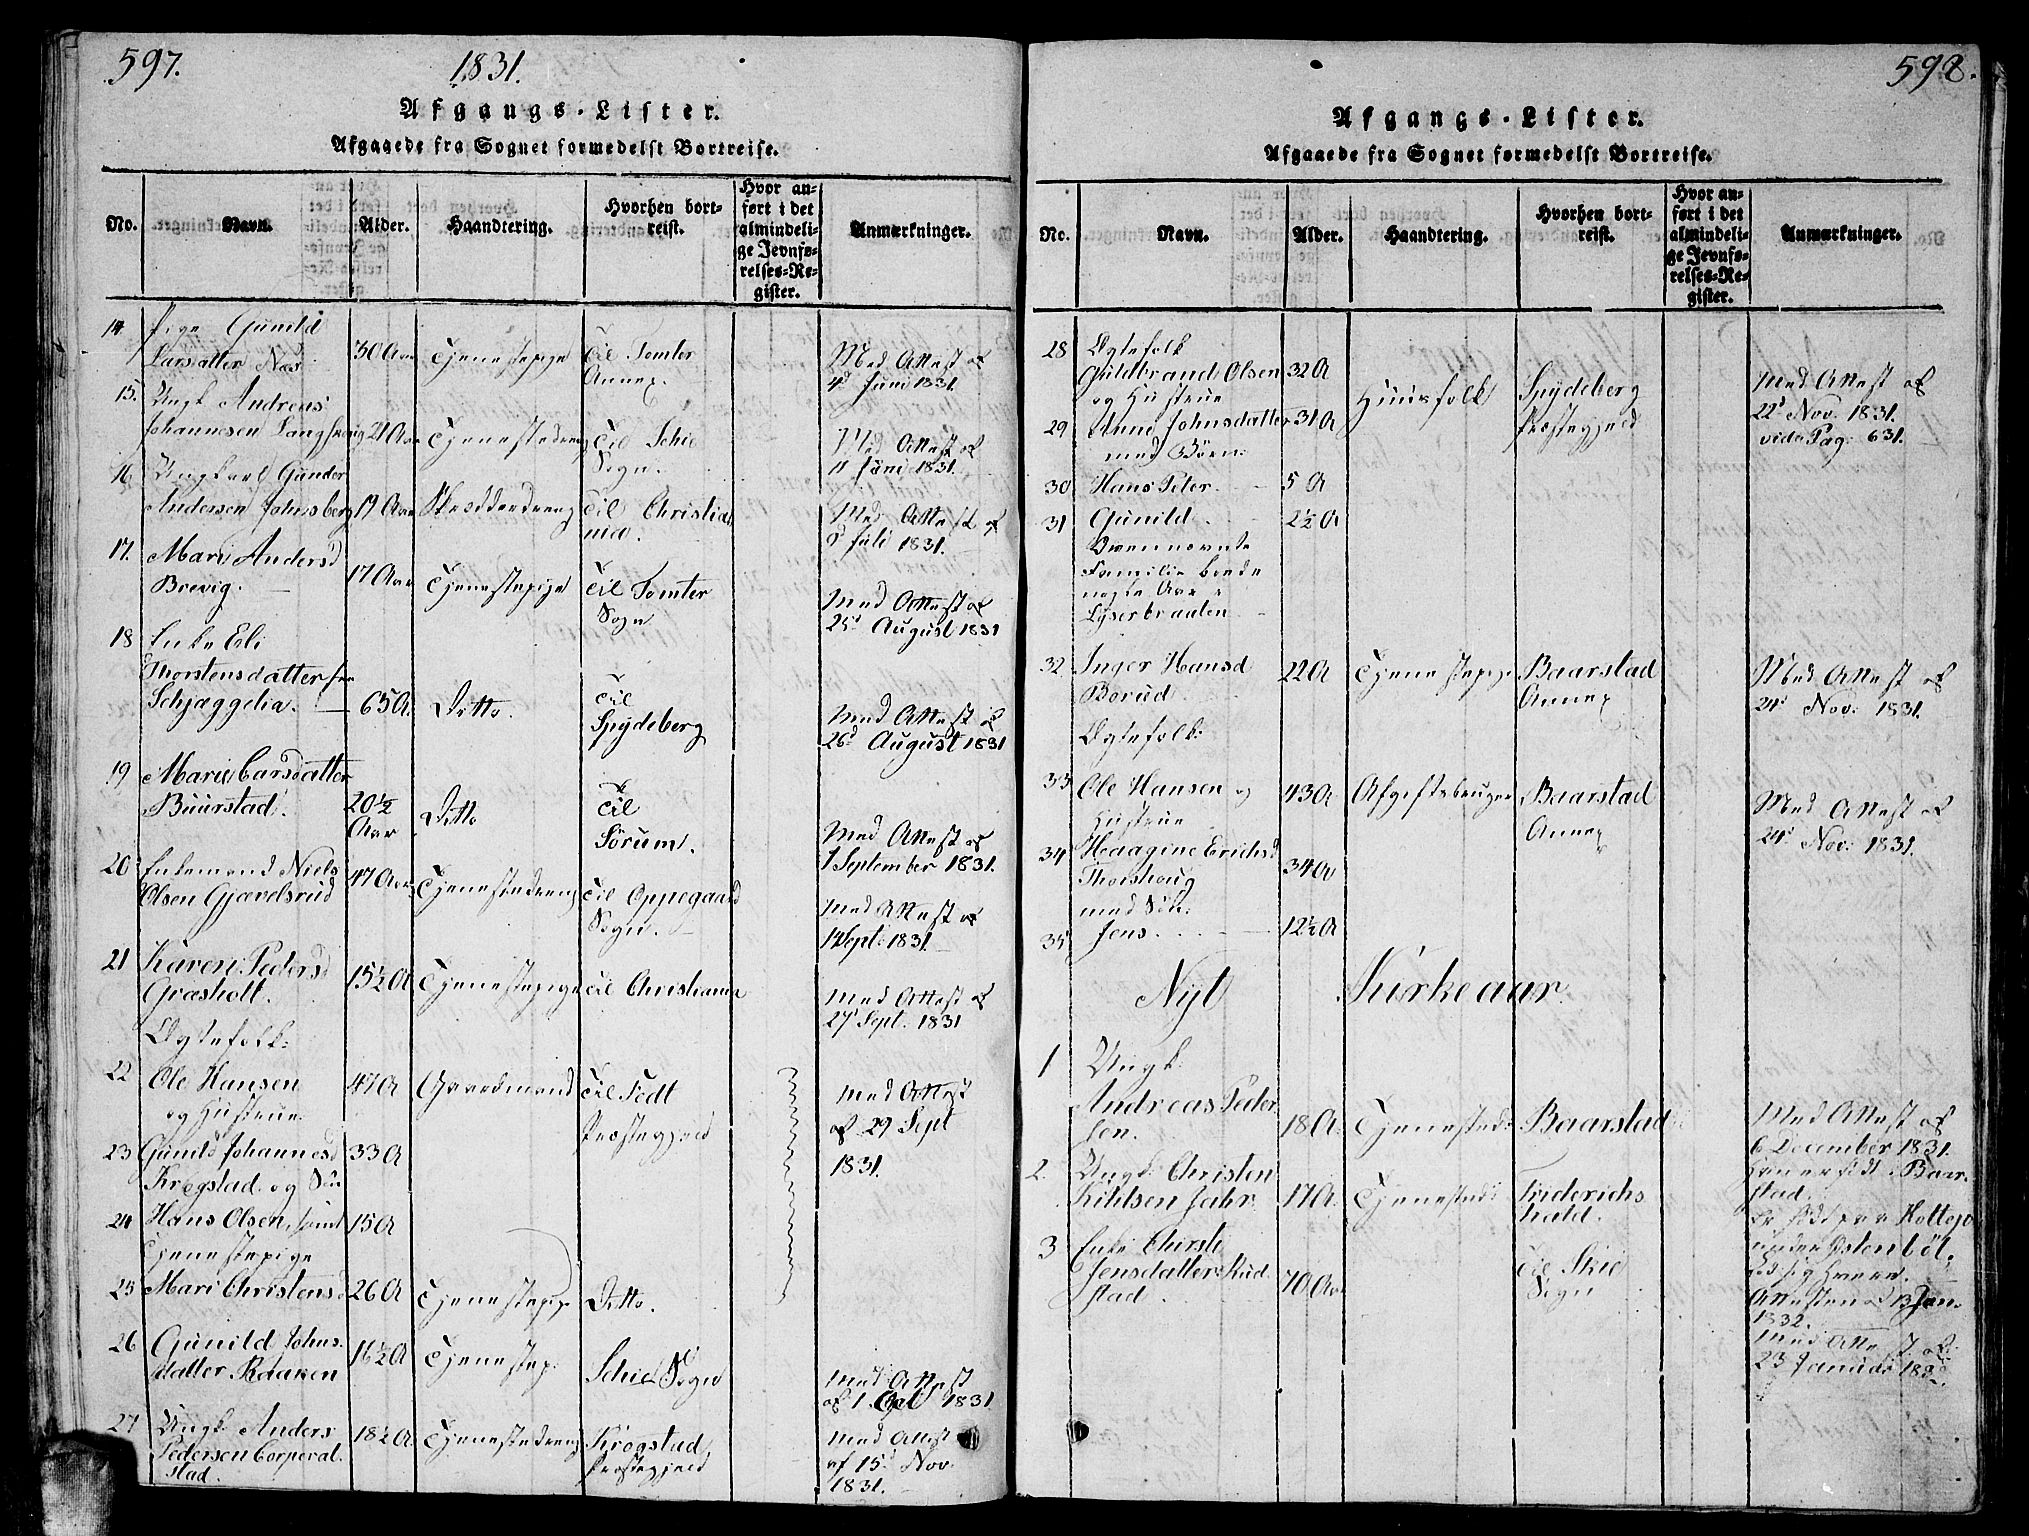 597. 1831.
Afgangs-Lister.
Afgaaede fra Sognet formedelst Bortreise.
No. Navn. Alder. Haandtering. Hvorhen bort-
reist. Hvor an-
ført i det
almindeli-
ge Jevnfø-
relses-Re-
gister. Anmærkninger.
14. Pige Gunild
Larsdatter Næs 30 Aar Tjenestepige til Tomter
Annex. Med Attest af
4d Juni 1831.
15. Ungk. Andreas
Johannesen 21 Aar Tjenestedreng til Schie
Sogn. Med Attest af
11 Juni 1831.
16 Ungkarl Gunder
Andersen Johnsberg 19 Aar Skrædderdreng til Christia
nia. Med Attest af
8 Juli 1831.
17. Mari Andersd
Brevig. 17 Aar Tjenestepige til Tomter
Sogn Med Attest af
25d August 1831
18 Enke Eli
Thorstensdatter fra
Schjæggelia. 65 A. Ditto. til
Spydeberg Med Attest af
26d August 1831
19 Marie Larsdatter
Buurstad. 20½
Aar Ditto til
Sørum. Med Attest af
1 September 1831.
20 Enkemand Niels
Olsen Gjævelsrud 47 Aar Tjenestedreng til Oppegaard
Sogn. Med Attest af
14 Sept: 1831.
21 Karen Pedersd
Græsholt. 15½ A Tjenestepige til Christiania Med Attest af
27d Sept. 1831
Ægtefolk:
22 Ole Hansen
og Hustrue 47 A Gaardmand til
Præstegjeld Med Attest
af 29 Sept
1831.
23 Gunild Johannesd
Krogstad og Søn 33 A
24 Hans Olsen, samt 15 A
Tjenestepige
25 Mari Christensd 26 A Tjenestepige Ditto.
26 Gunild Johns-
datter Raaken 16½ A Tjenestep. Schie Sogn Med Attest
af 1. 1831
27 Ungk. Anders
Pedersen Corperal-
stad. 18½ A. Tjenestedreng Krogstad
Præstegjeld Med Attest
af 15d Nov.
1831.
598.
Afgangs-Lister.
Afgaaede fra Sognet formedelst Bortreise.
No. Navn. Alder. Haandtering. Hvorhen bort-
reist. Hvor an-
ført i det
almindeli-
ge Jevnfø-
relses-Re-
gister. Anmærkninger.
28 Ægtefolk
Guldbrand Olsen 32 A
og Hustrue Huusfolk Spydeberg
Præstegjeld Med Attest af
22d Nov. 1831.
vide Pag: 631.
29 Anne Johnsdatter 31 A
med Börn:
30 Hans Peter. 5 A
31 Gunild. 2½ A
Ovennævnte
Familie boede
nogle Aar i
Lyserbraaten
32 Inger Hansd
Borud 22 A Tjenestepige Baarstad
Annex Med Attest af
24d Nov: 1831.
Ægtefolk:
33 Ole Hansen og
Hustrue 43 A Afgiftsbruger Baarstad
Annex Med Attest af
24d Nov: 1831.
34 Haagine Erichsd
Thorshoug 34 A
med Søn:
35 Jens. 12½ A
Nyt Kirkeaar.
1 Ungk.
Andreas Peder
sen. 18 A. Tjenested: Baarstad Med Attest af
6 December 1831.
Han er født i Baar-
stad.
2. Ungk. Christen
Kihlsen Jahr 17 A Tjenested: Friderichs
hald. Er født paa
under Østenbøl.
Attesten af 13 Jan.
1832.
3 Enke Chirsti
Jensdatter Rud
stad 70 Aar til Skie
Sogn Med Attest af
23 Januar